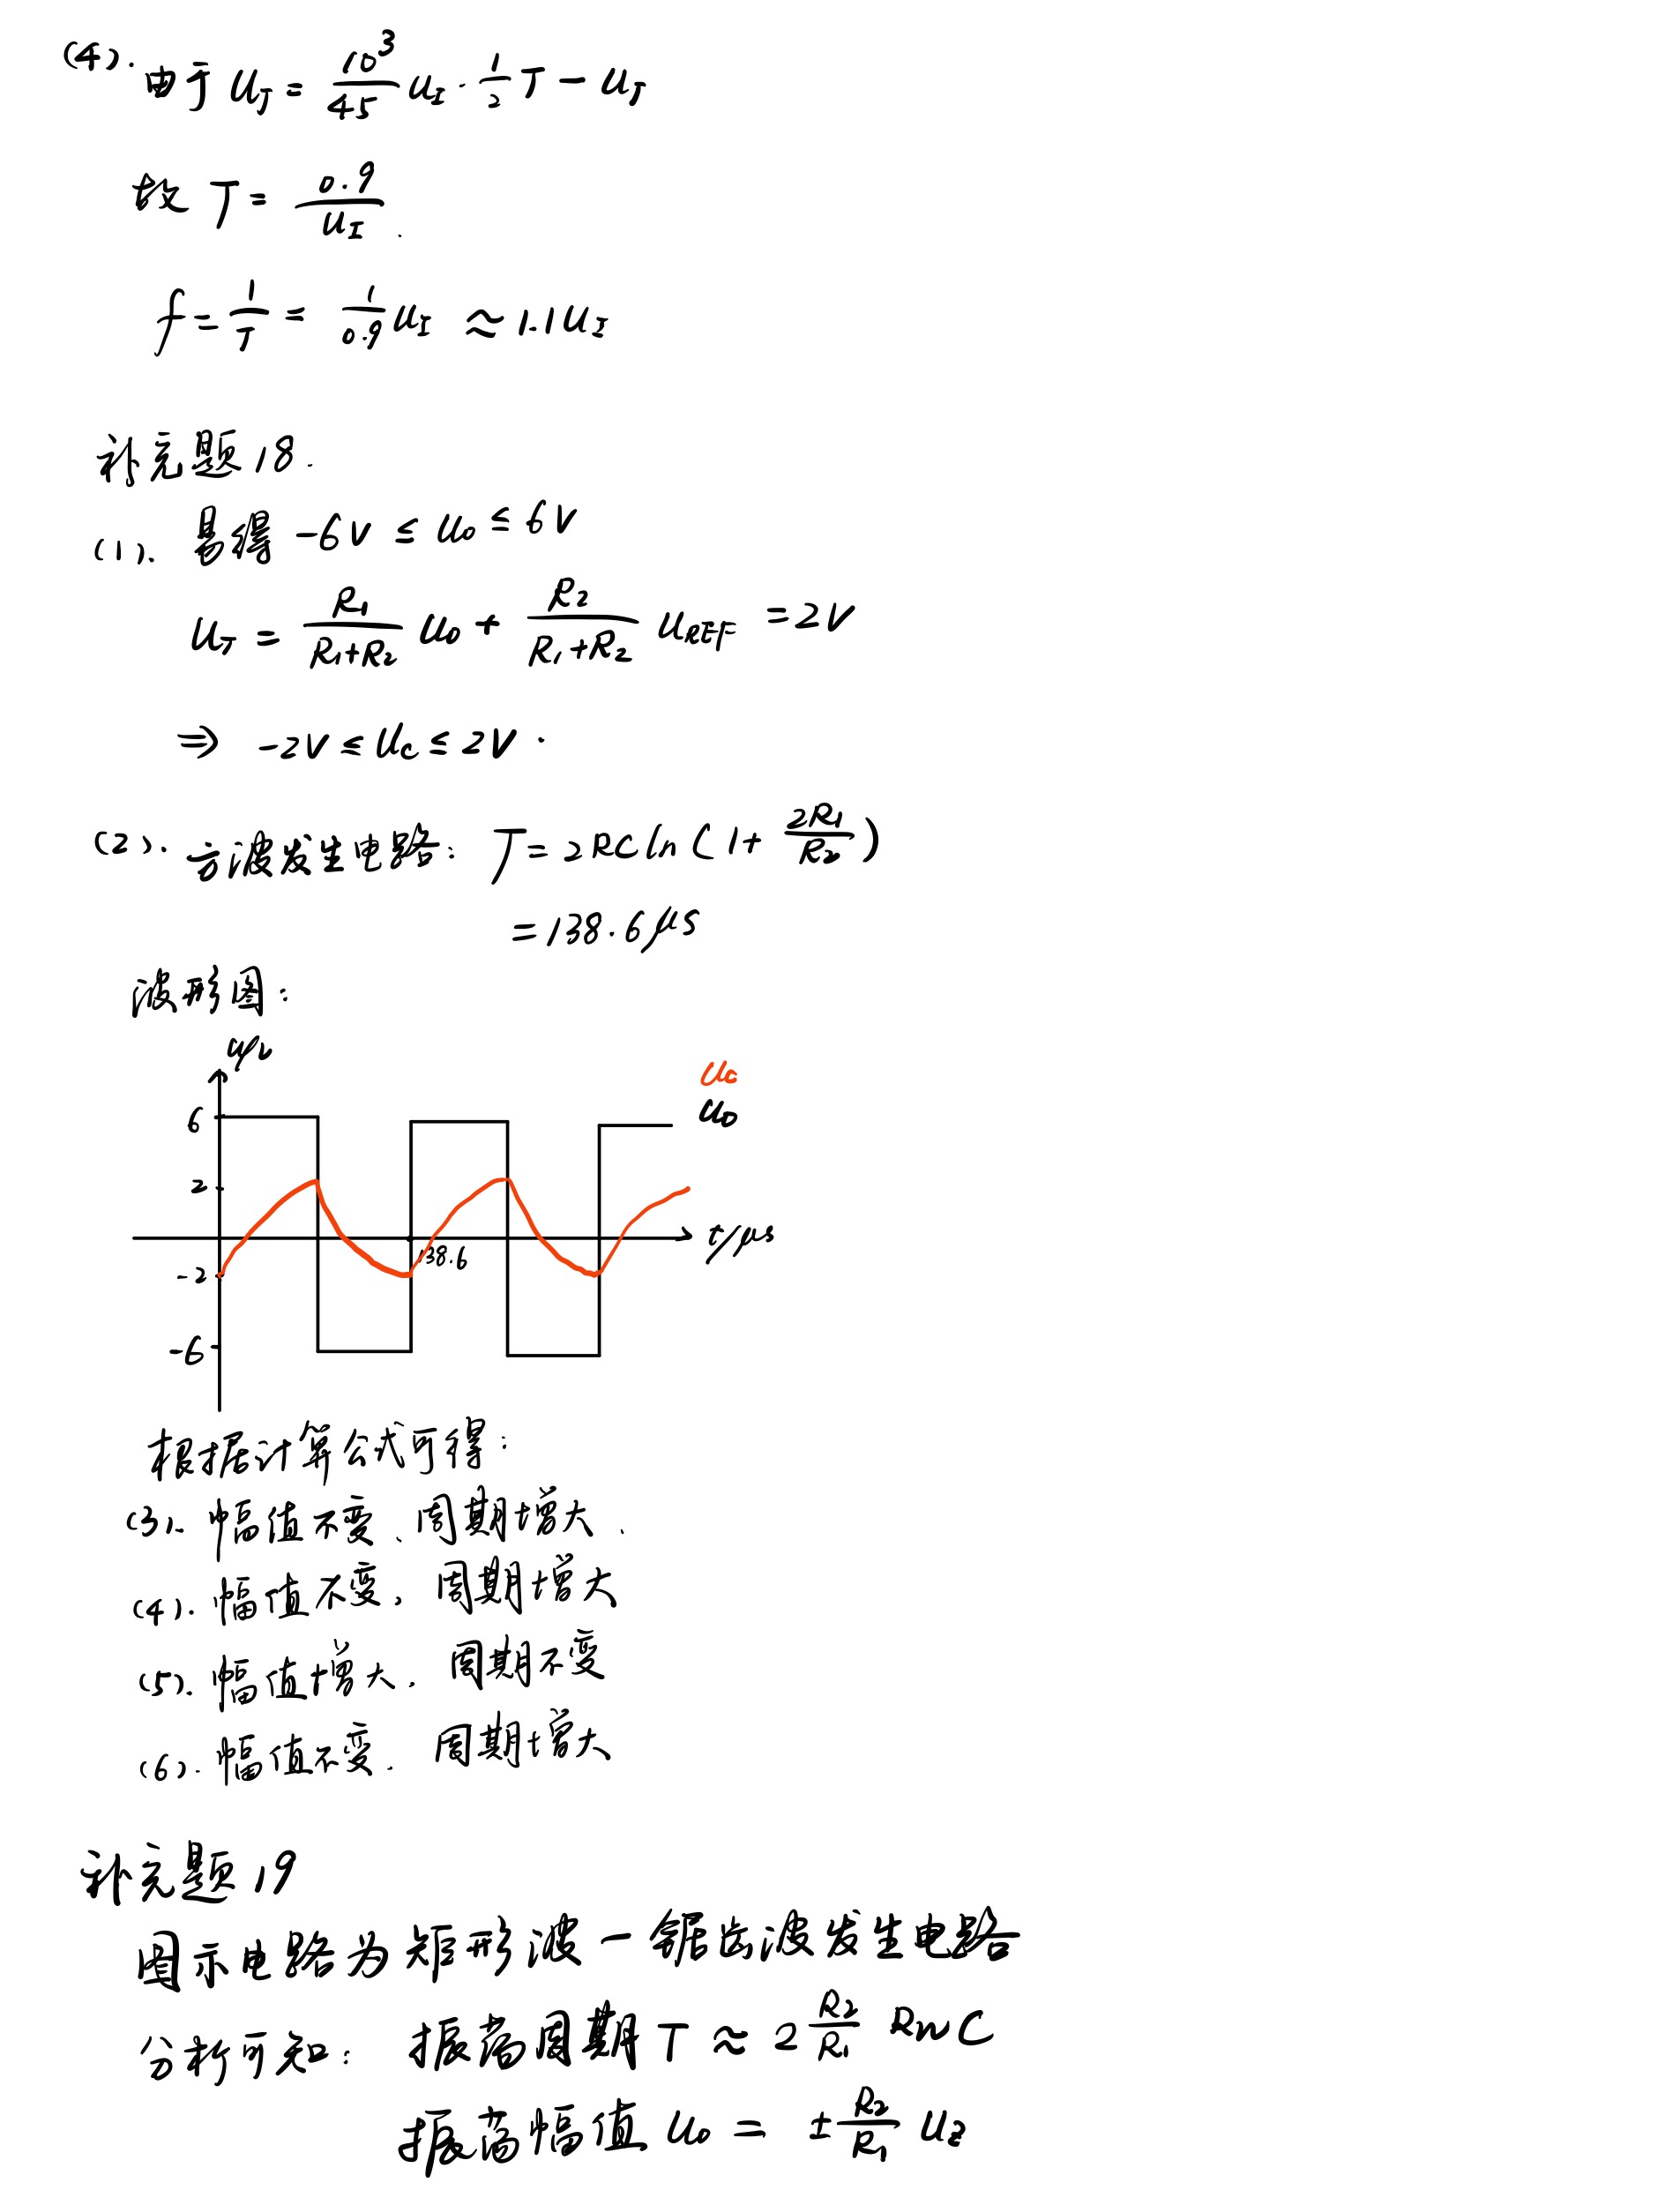 (4). 由于 U_T = \frac{10^3}{45} u_I · \frac{1}{2} T - U_T
故 T = \frac{0.9}{u_I}.
f = \frac{1}{T} = \frac{1}{0.9} u_I ≈ 1.1 u_I
补充题 18.
(1). 易得 -6V ≤ u_o ≤ 6V
U_T = \frac{R_1}{R_1+R_2} u_o + \frac{R_2}{R_1+R_2} u_{REF} = 2V
⇒ -2V ≤ u_c ≤ 2V.
(2). 方波发生电路: T = 2RC ln(1 + \frac{2R_1}{R_2})
= 138.6 μs
波形图:
u/v
u_c
6
u_o
2
t/μs
138.6
-2
-6
根据计算公式可得:
(3). 幅值不变、周期增大.
(4). 幅值不变, 周期增大
(5). 幅值增大. 周期不变
(6). 幅值不变. 周期增大
补充题 19
图示电路为矩形波一锯齿波发生电路
分析可知: 振荡周期 T ≈ 2 \frac{R_2}{R_1} R_W C
振荡幅值 u_o = ± \frac{R_2}{R_1} U_Z